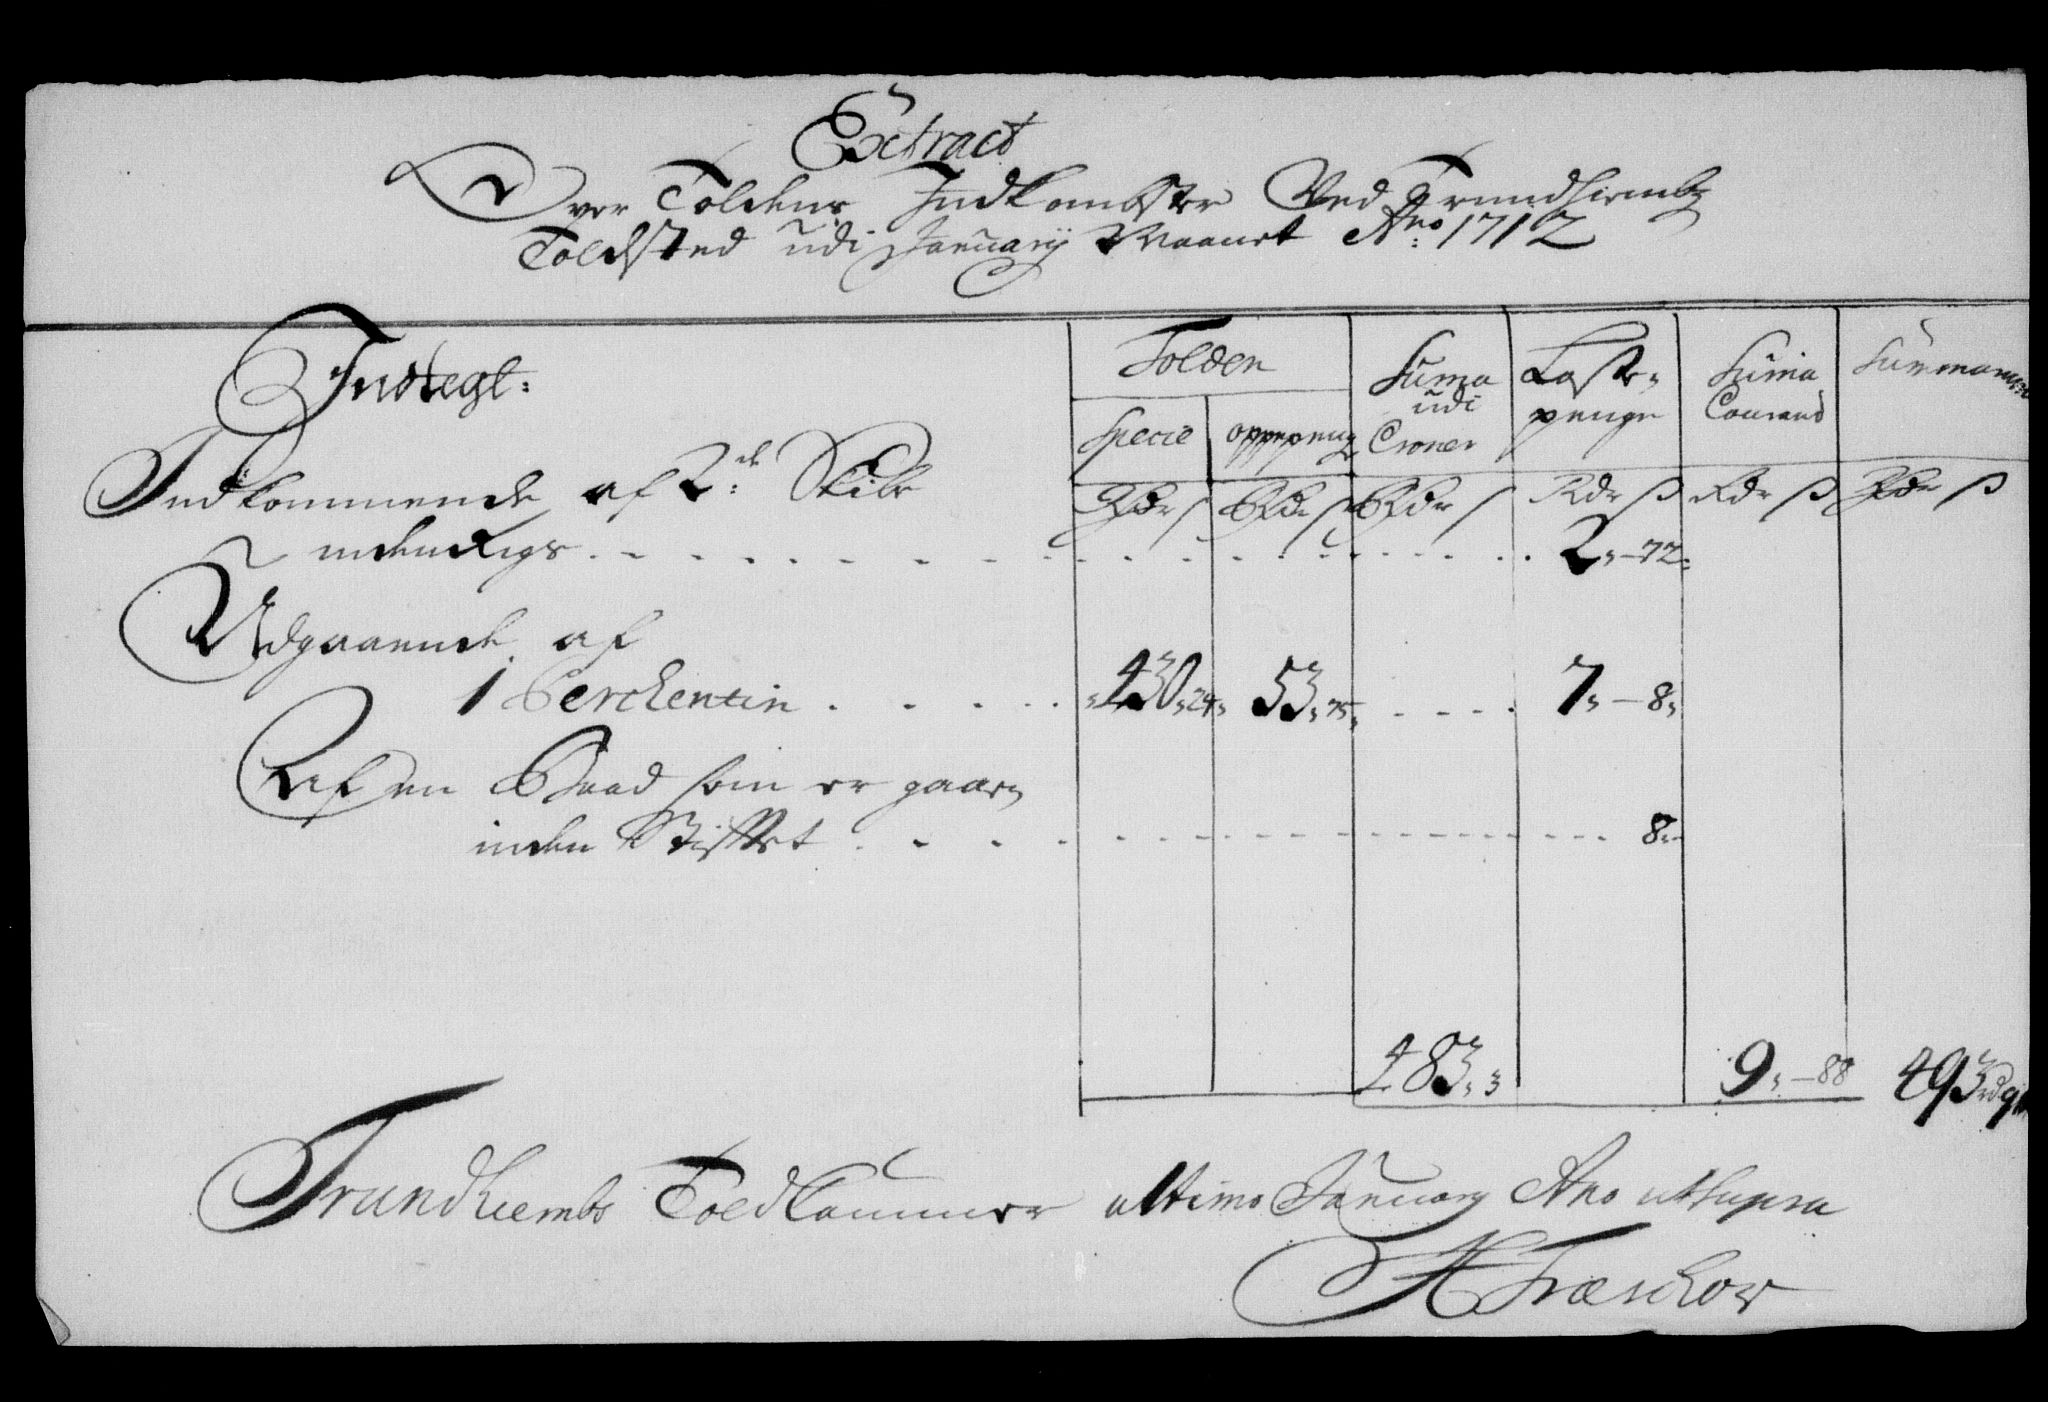 Extract
Over Toldens Indkombster Ved Trundhiembz
Toldsted udi January Maanet Ano 1712
Indtegt:
Tolden
Specie
oppepeng
Suma udi Croner
Laste-penge
Suma Courand
Summarum
Rdr ß Rdr ß Rdr ß Rdr ß Rdr ß Rdr ß
Indkommende af 2de Skibe
indenRigs . . . . . 2„-72„
Udgaaende af
1 Berckentin . . . . . 430„24„ 53„75„ . . . . 7„-8„
Af en Baad som er gaaen
inden Stifftet . . . . . 8„-
483„3 9„-88 493rd
Trundhiembs Toldkammer ultimo January Ano utsupra
H Træschow